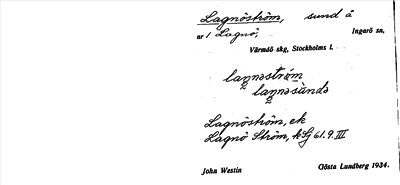 Lagnöström, sund å
nr 1 Lagnö, Ingarö sn,
Värmdö skg, Stockholms l.
laŋnəström
laŋnəsùndə
Lagnöström, ek
Lagnö Ström, hSj 61.9.III
John Westin Gösta Lundberg 1934.